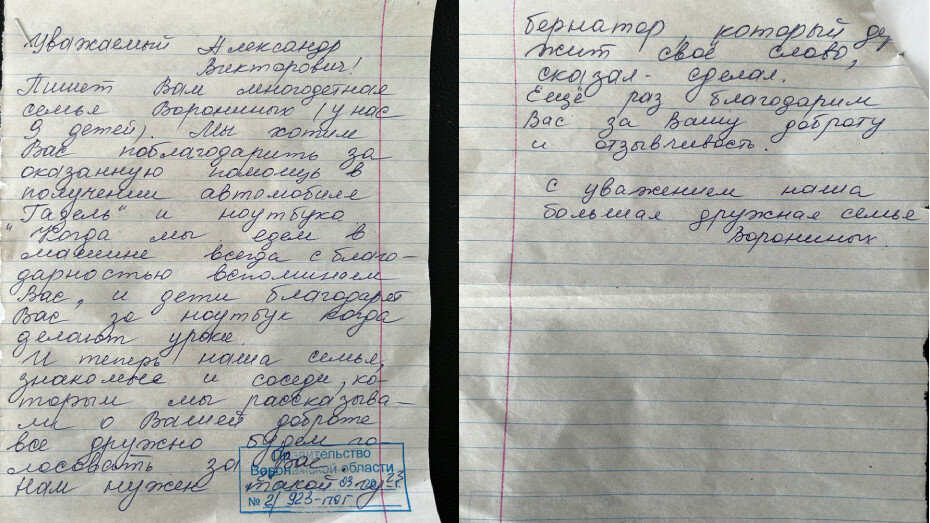 Уважаемый Александр
Викторович!
Пишет Вам многодетная
семья Ворониных (у нас
9 детей). Мы хотим
Вас поблагодарить за
оказанную помощь в
получении автомобиля
"Газель" и ноутбука.
Когда мы едем в
машине всегда с благо-
дарностью вспоминаем
Вас, и дети благодарят
Вас за ноутбук когда
делают уроки.
И теперь наша семья,
знакомые и соседи, ко-
торым мы рассказыва-
ли о Вашей доброте
все дружно будем го-
лосовать за Вас.
Нам нужен такой гу-
Правительство
Воронежской области
03 23 г.
№ 923-пог
бернатор, который дер
жит своё слово,
сказал - сделал.
Ещё раз благодарим
Вас за Вашу доброту
и отзывчивость.
С уважением наша
большая дружная семья
Ворониных.